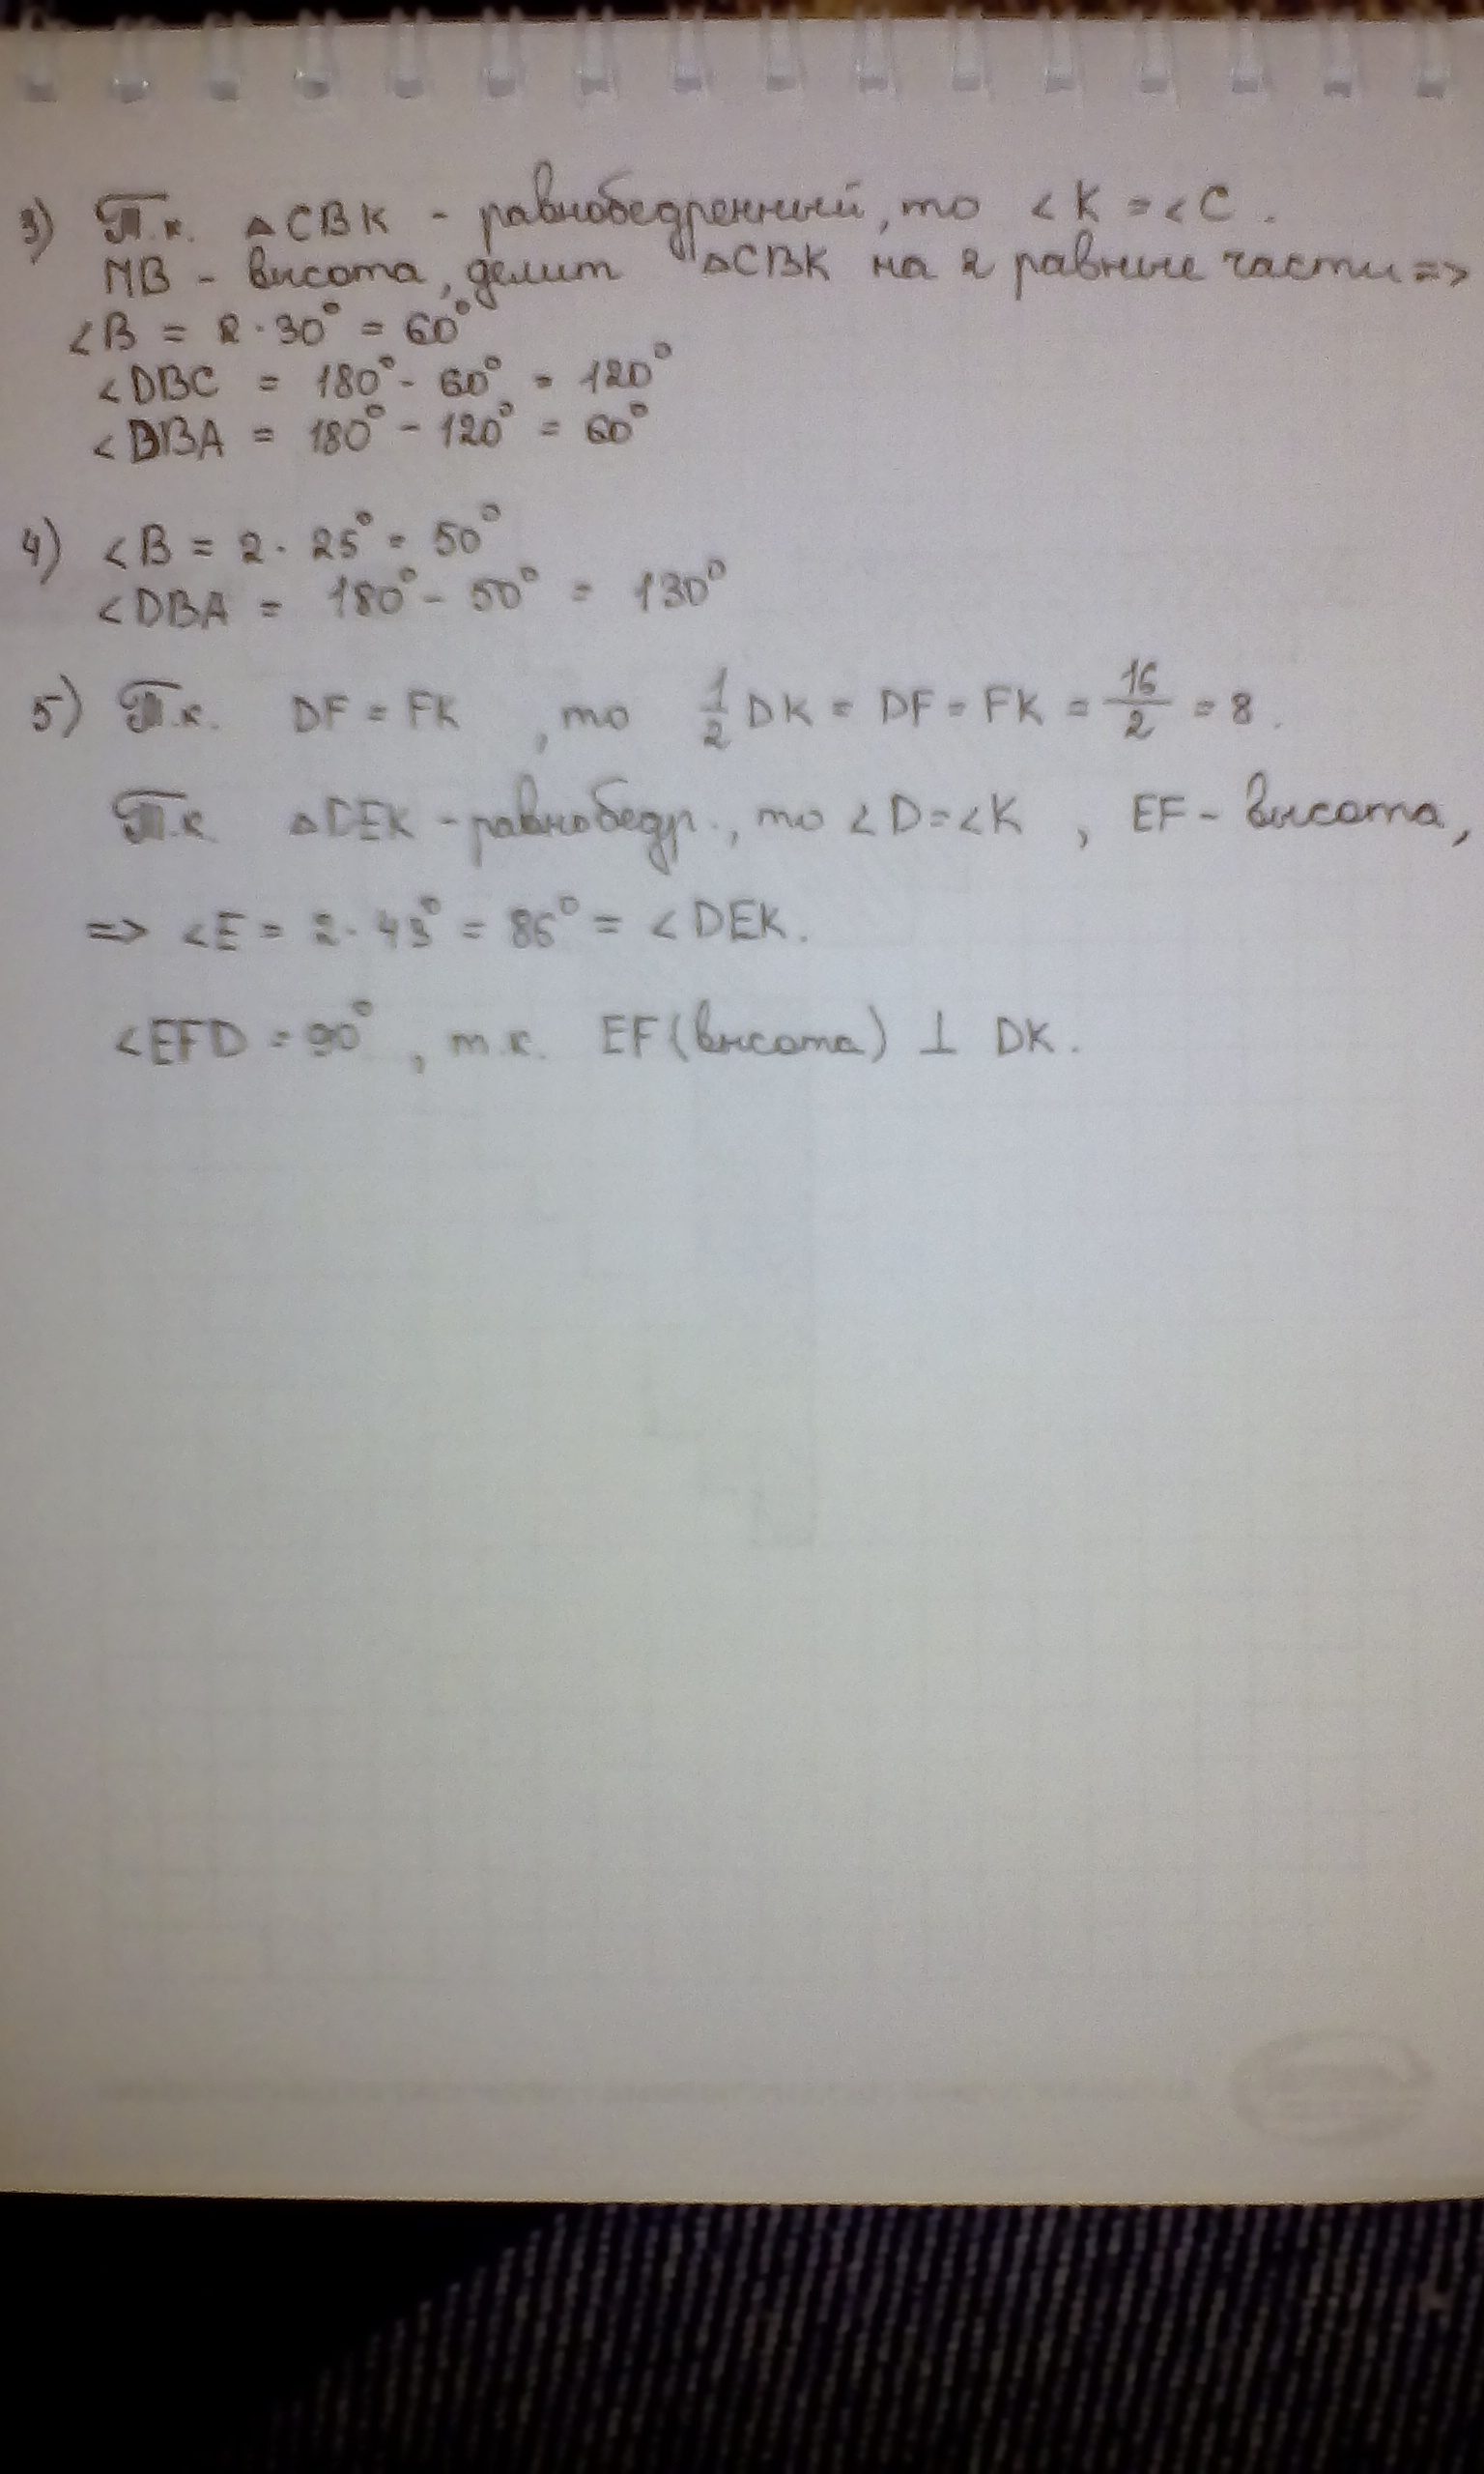 3) Т.к. △CBK - равнобедренный, то ∠K = ∠C.
MB - высота, делит △CBK на 2 равные части =>
∠B = 2 · 30° = 60°
∠DBC = 180° - 60° = 120°
∠DBA = 180° - 120° = 60°
4) ∠B = 2 · 25° = 50°
∠DBA = 180° - 50° = 130°
5) Т.к. DF = FK, то 1/2 DK = DF = FK = 16/2 = 8.
Т.к. △DEK - равнобедр., то ∠D = ∠K, EF - высота,
=> ∠E = 2 · 43° = 86° = ∠DEK.
∠EFD = 90°, т.к. EF (высота) ⊥ DK.